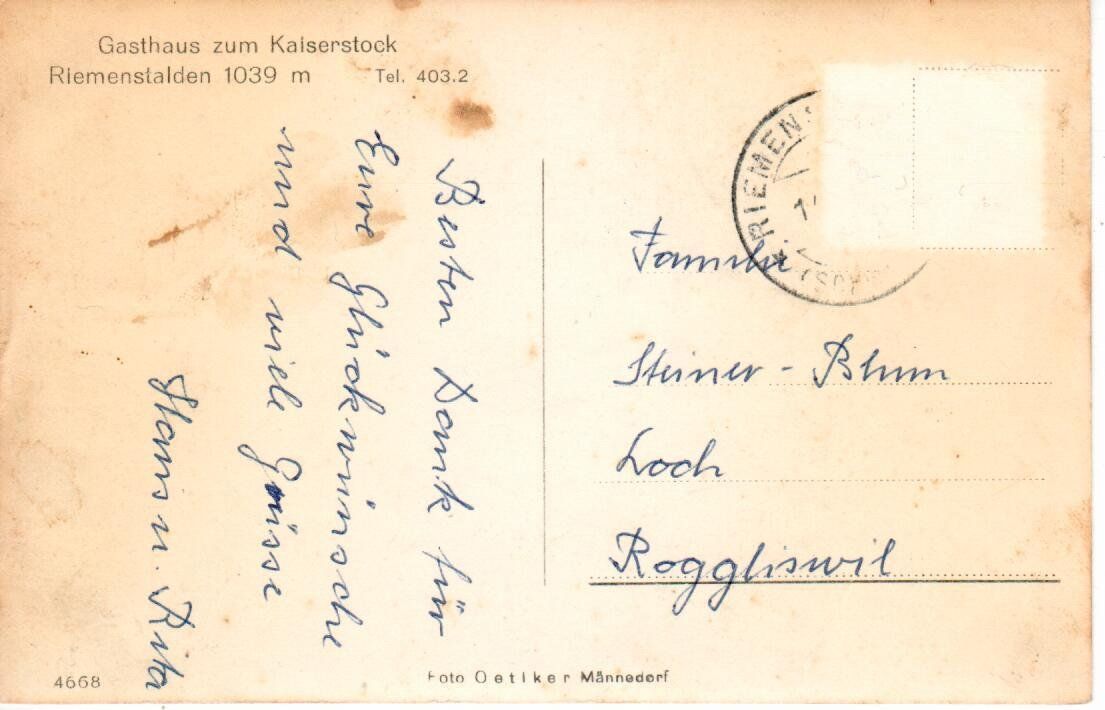 Gasthaus zum Kaiserstock
Riemenstalden 1039 m Tel. 403.2
Besten Dank für
Eure Glückwünsche
und viele Grüsse
Hans u. Rita
RIEMEN
(SCH
Familie
Steiner-Blum
Loch
Roggliswil
4668
Foto Oetiker Männedorf